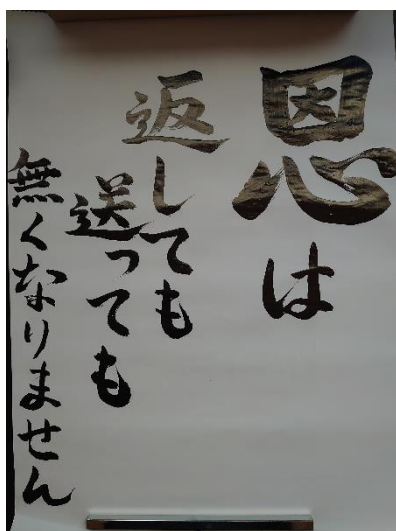 恩は
返しても
送っても
無くなりません